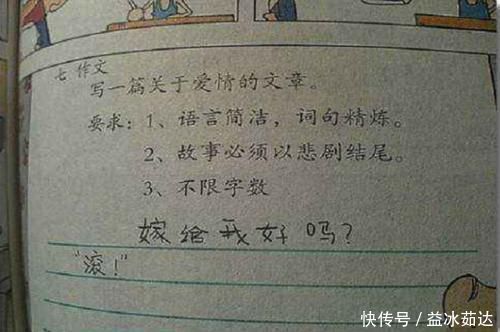 七 作文
写一篇关于爱情的文章。
要求：1、语言简洁，词句精炼。
2、故事必须以悲剧结尾。
3、不限字数
嫁给我好吗？
“滚！”
快传号／益冰茹达